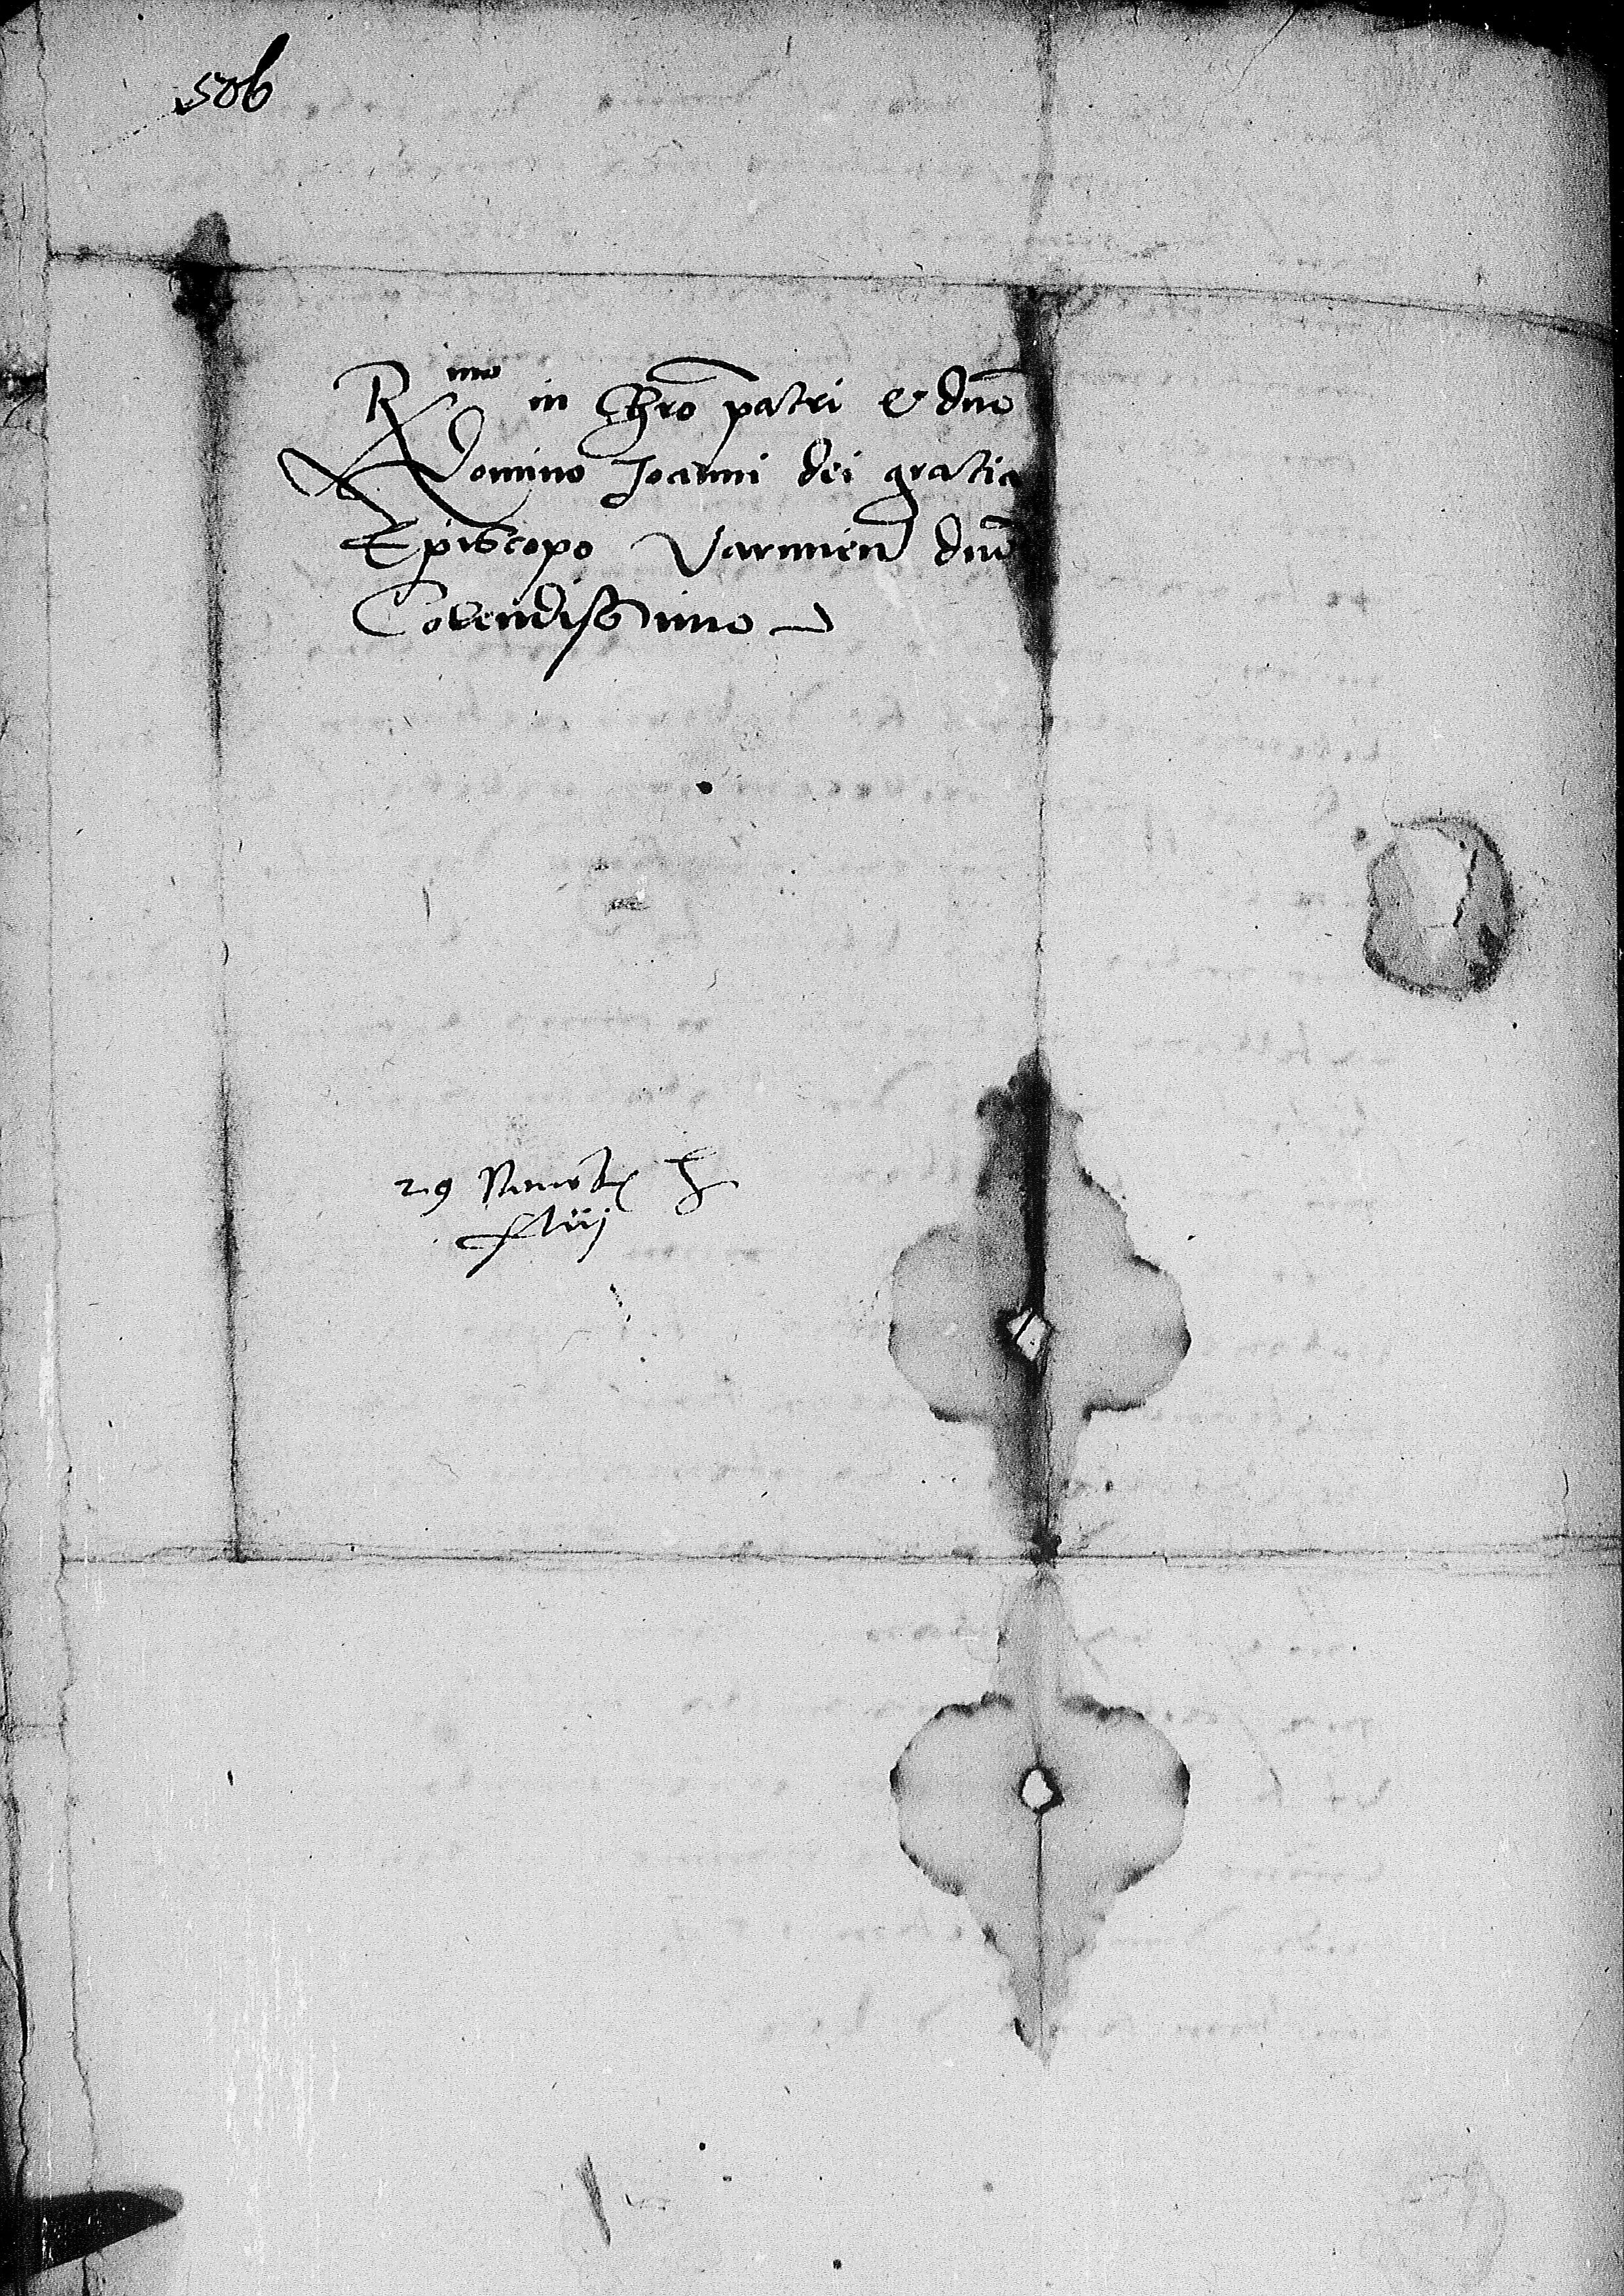 506
R mo in Chro patri & dno
Domino Joanni dei gratia
Episcopo Varmien dno
Colendissimo
29 Nouemb